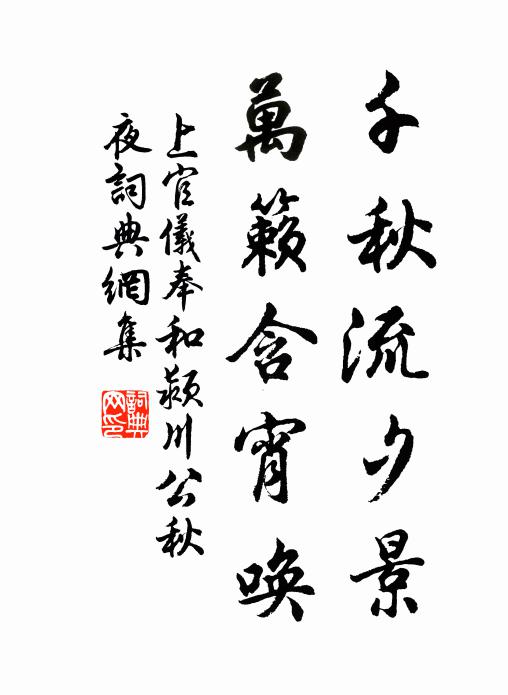 千秋流夕景
萬籟含宵喚
上官儀奉和潁川公秋
夜詞典網集
詞典
网印